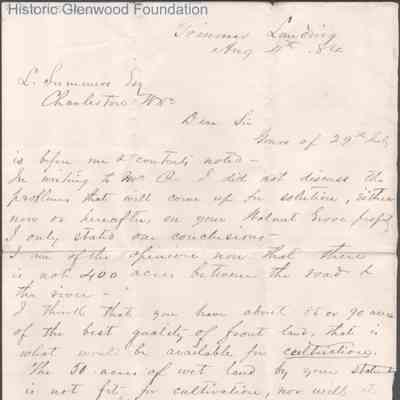 Historic Glenwood Foundation
Landing
Aug 4th 84
L. Summers Esq
Charleston W Va
Dear Sir
Yours of 29th July
is before me & contents noted —
In writing to Mr I did not discuss the
problems that will come up for solution, either
now or hereafter on your Walnut Grove property
I only stated our conclusions —
I am of the opinion now that there
is not 400 acres between the road &
the river —
I think that you have about or 90 acres
of the best quality of front land, that is
what would be available for cultivation.
The 50 acres of wet land by your statement
is not fit for cultivation, nor will it